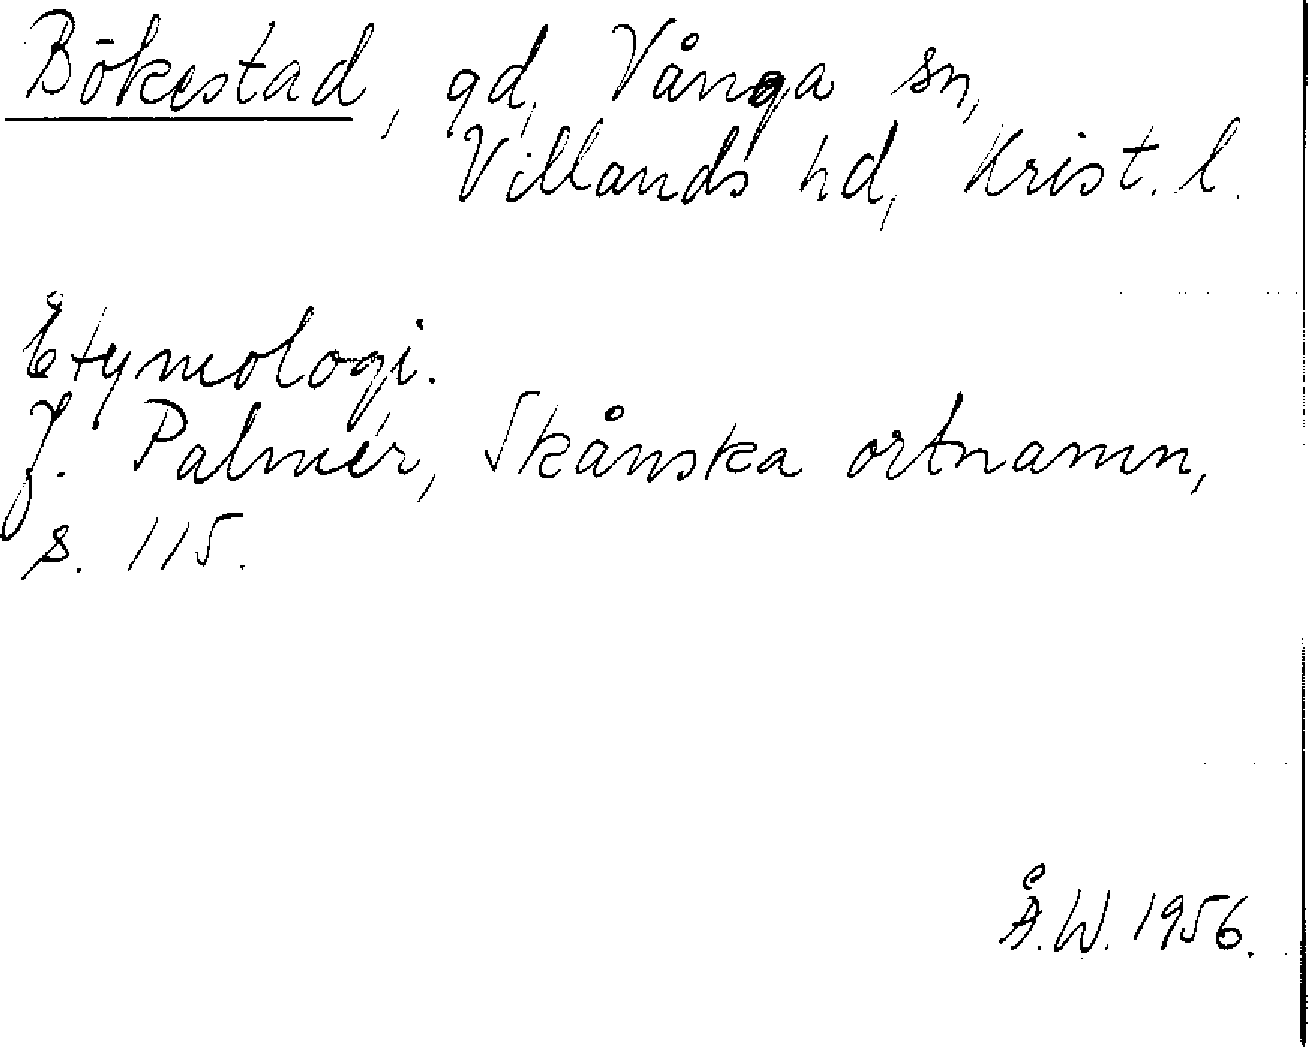 Bökestad, gd, Vånga sn,
Villands hd, Krist. l.
Etymologi.
J. Palmér, Skånska ortnamn,
s. 115.
Å.W. 1956.